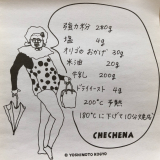 強力粉 280g
塩 4g
オリゴのおかげ 30g
米油 20g
牛乳 200g
ドライイースト 4g
200℃ 予熱
180℃に下げて10分
CHECHENA
© YOSHIMOTO KOGYO